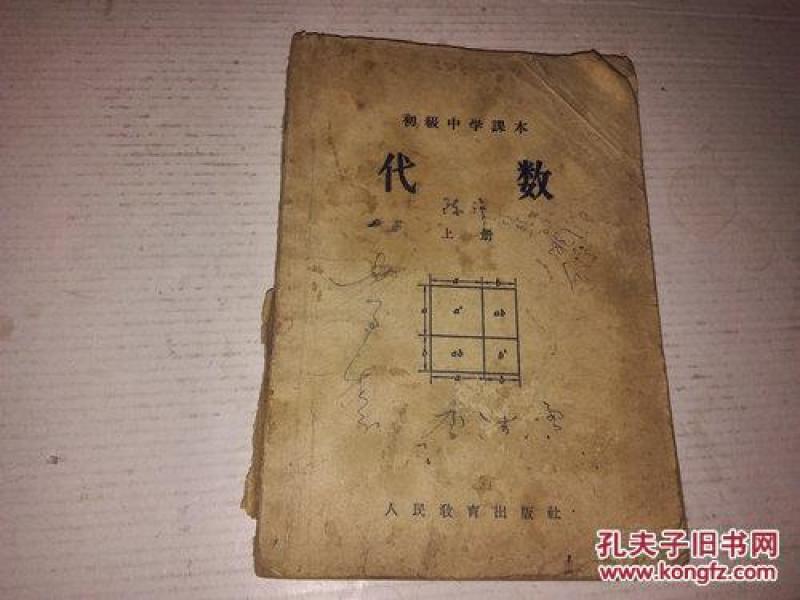 初級中学課本
代数
上册
a b
a a² ab
b ab b²
a b
人民教育出版社
孔夫子旧书网
www.kongfz.com